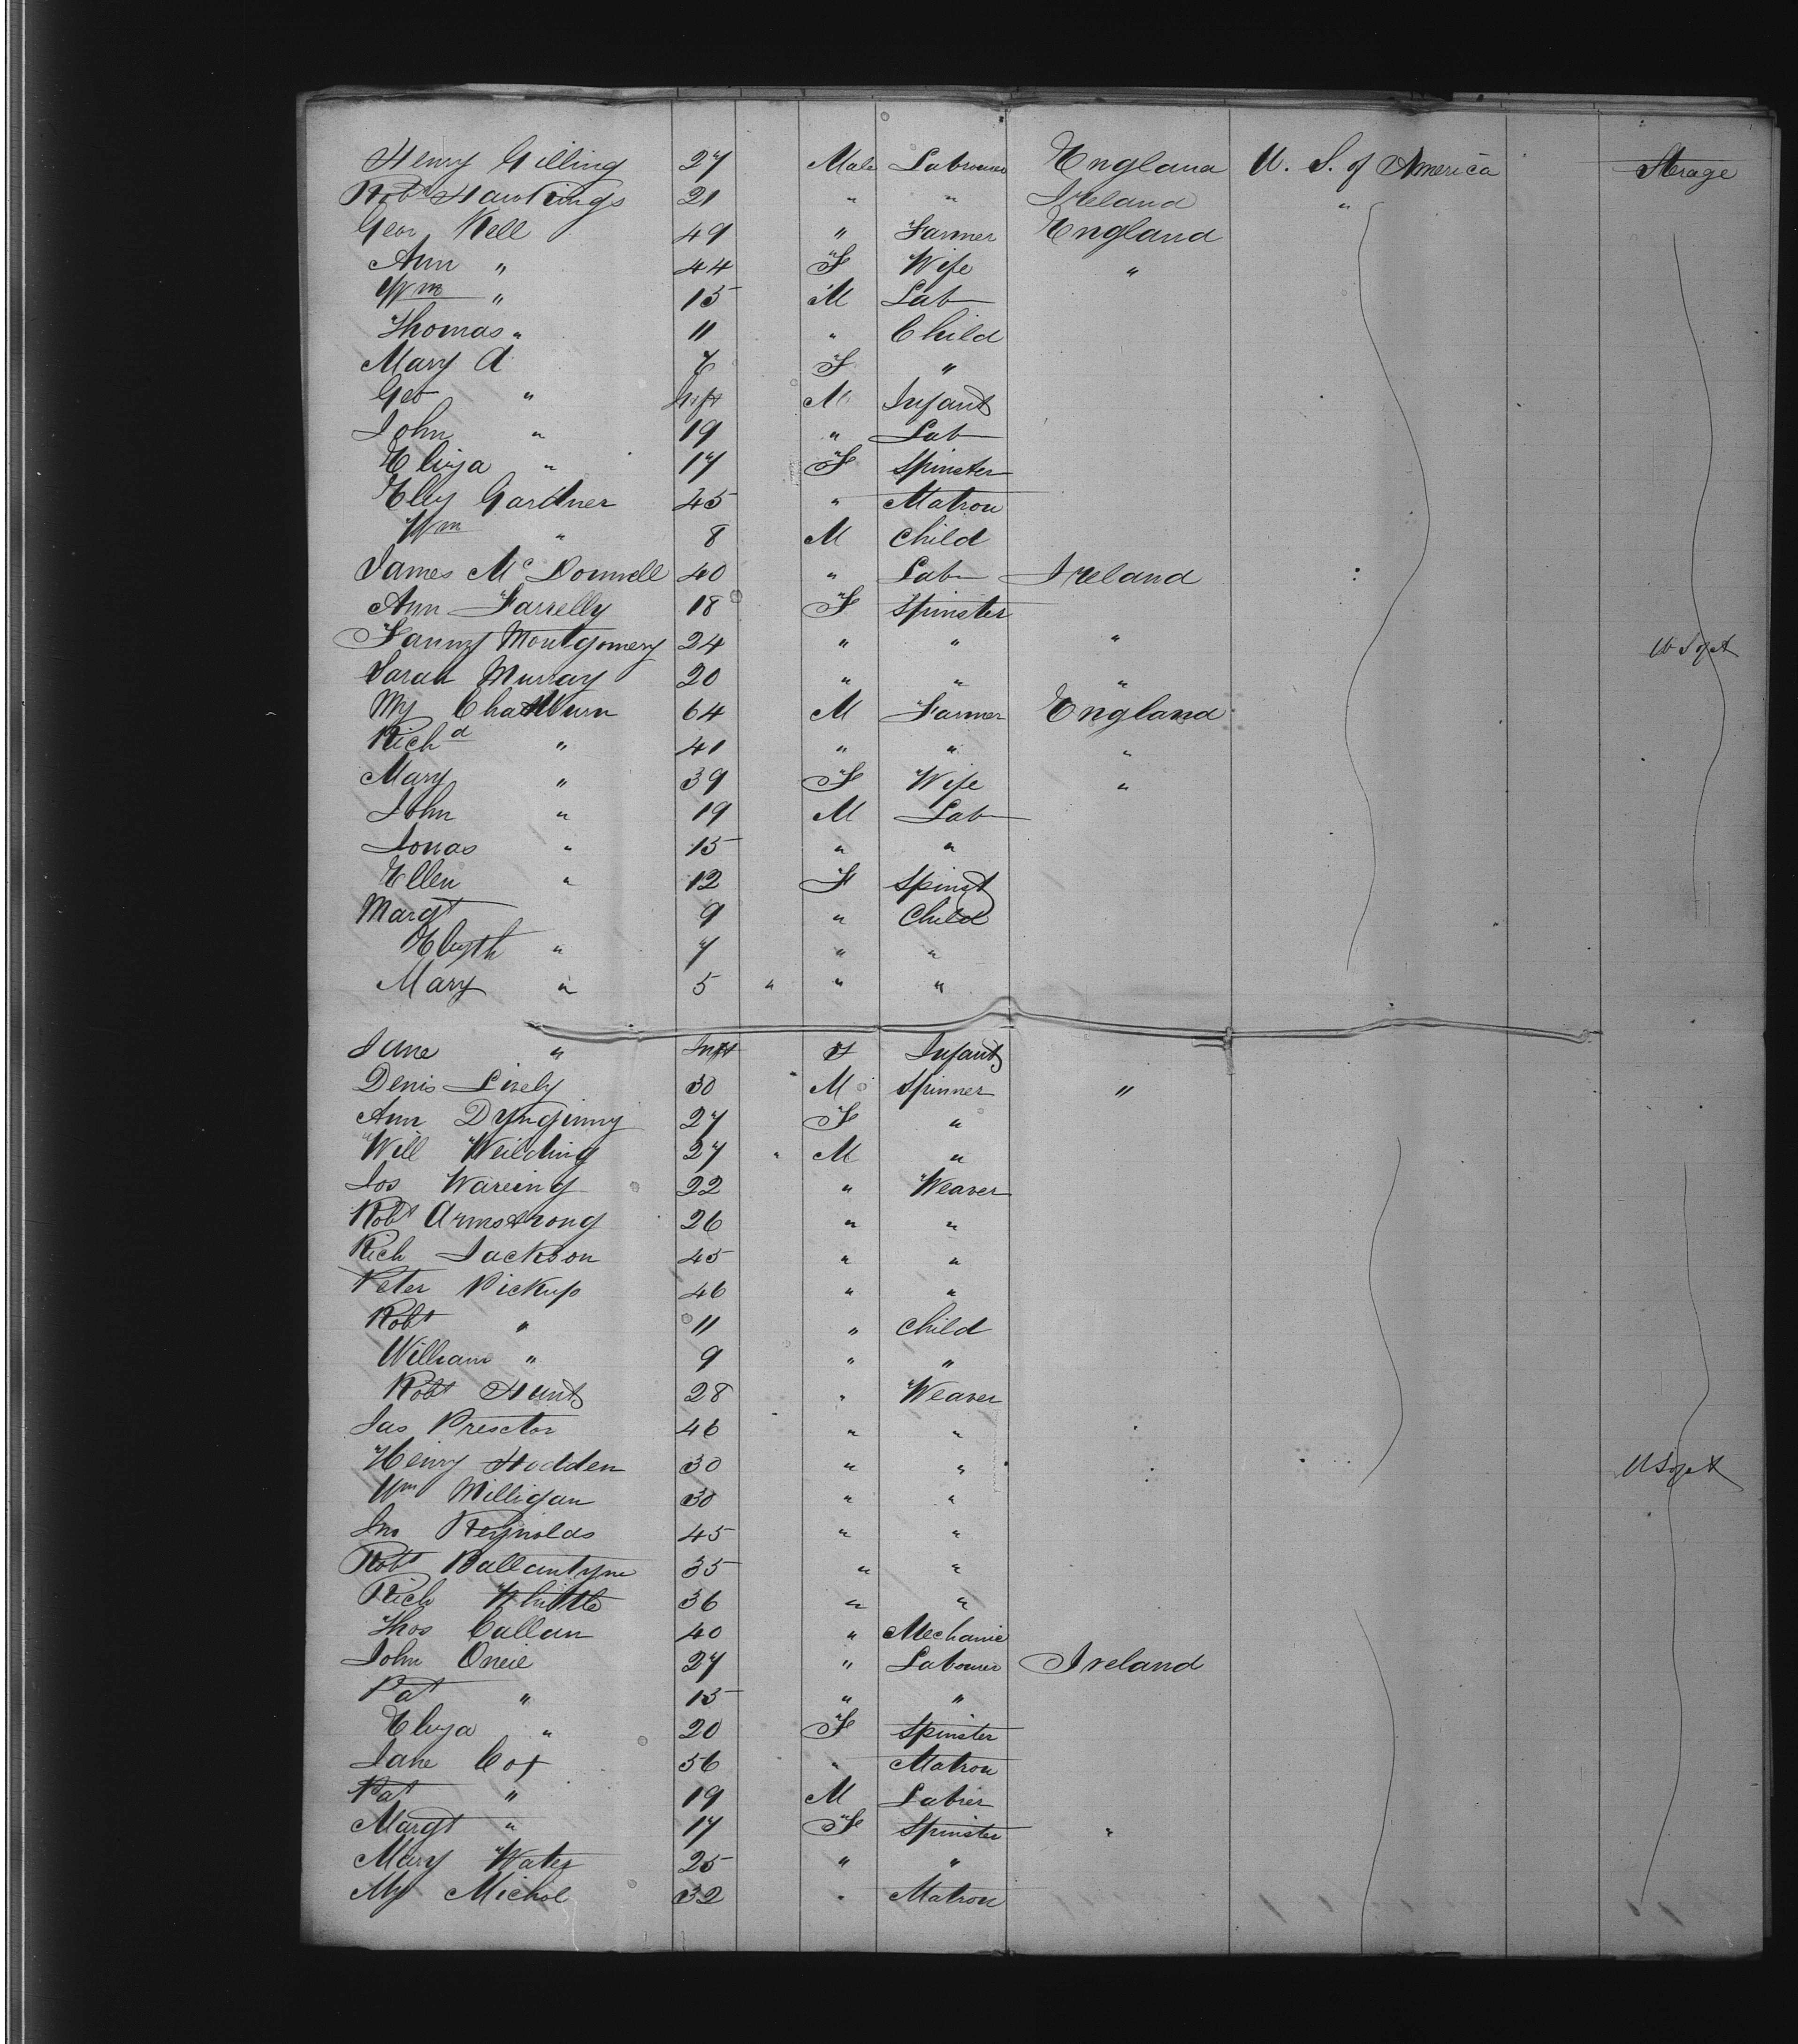 Henry Gilling 27 Male Labourer England U. S. of America Sterage
Robt Hawkings 21 " " Ireland "
Geor Kell 49 " Farmer England
Ann " 44 F Wife "
Wm " 15 M Lab
Thomas " 11 " Child
Mary A 7 F "
Geo " Inft M Infant
John " 19 " Lab
Eliza " 17 F Spinster
Elly Gardner 45 " Matron
Wm " 8 M Child
James McDonnell 40 " Lab Ireland
Ann Farrelly 18 F Spinster
Fanny Montgomery 24 " " " U S of A
Sarah Murray 20 " " "
My Chatburn 64 M Farmer England
Richd " 41 " " "
Mary " 39 F Wife "
John " 19 M Lab
Jonas " 15 " "
Ellen " 12 F Spinst
Margt 9 " Child
Elizth " 7 " "
Mary " 5 " " "
Jane " Inft F Infant
Denis Lively 30 M Spinner "
Ann 27 F "
Will Weilding 27 " M "
Jos Wareing 22 " Weaver
Robt Armstrong 26 " "
Rich Jackson 45 " "
Peter Pickup 46 " "
Robt " 11 " Child
William " 9 " "
Robt Hunt 28 " Weaver
Jas Presctor 46 " "
Henry Hodden 30 " " U S of A
Wm Milligan 30 " "
Jno Reynolds 45 " "
Robt Ballantyne 35 " "
Rich Whittle 36 " "
Thos Callan 40 " Mechanic
John Oneil 27 " Labourer Ireland
Pat " 15 " "
Eliza " 20 F Spinster
Jane Cox 56 " Matron
Pat " 19 M Labrer
Margt " 17 F Spinster "
Mary Water 25 " "
My Michol 32 " Matron